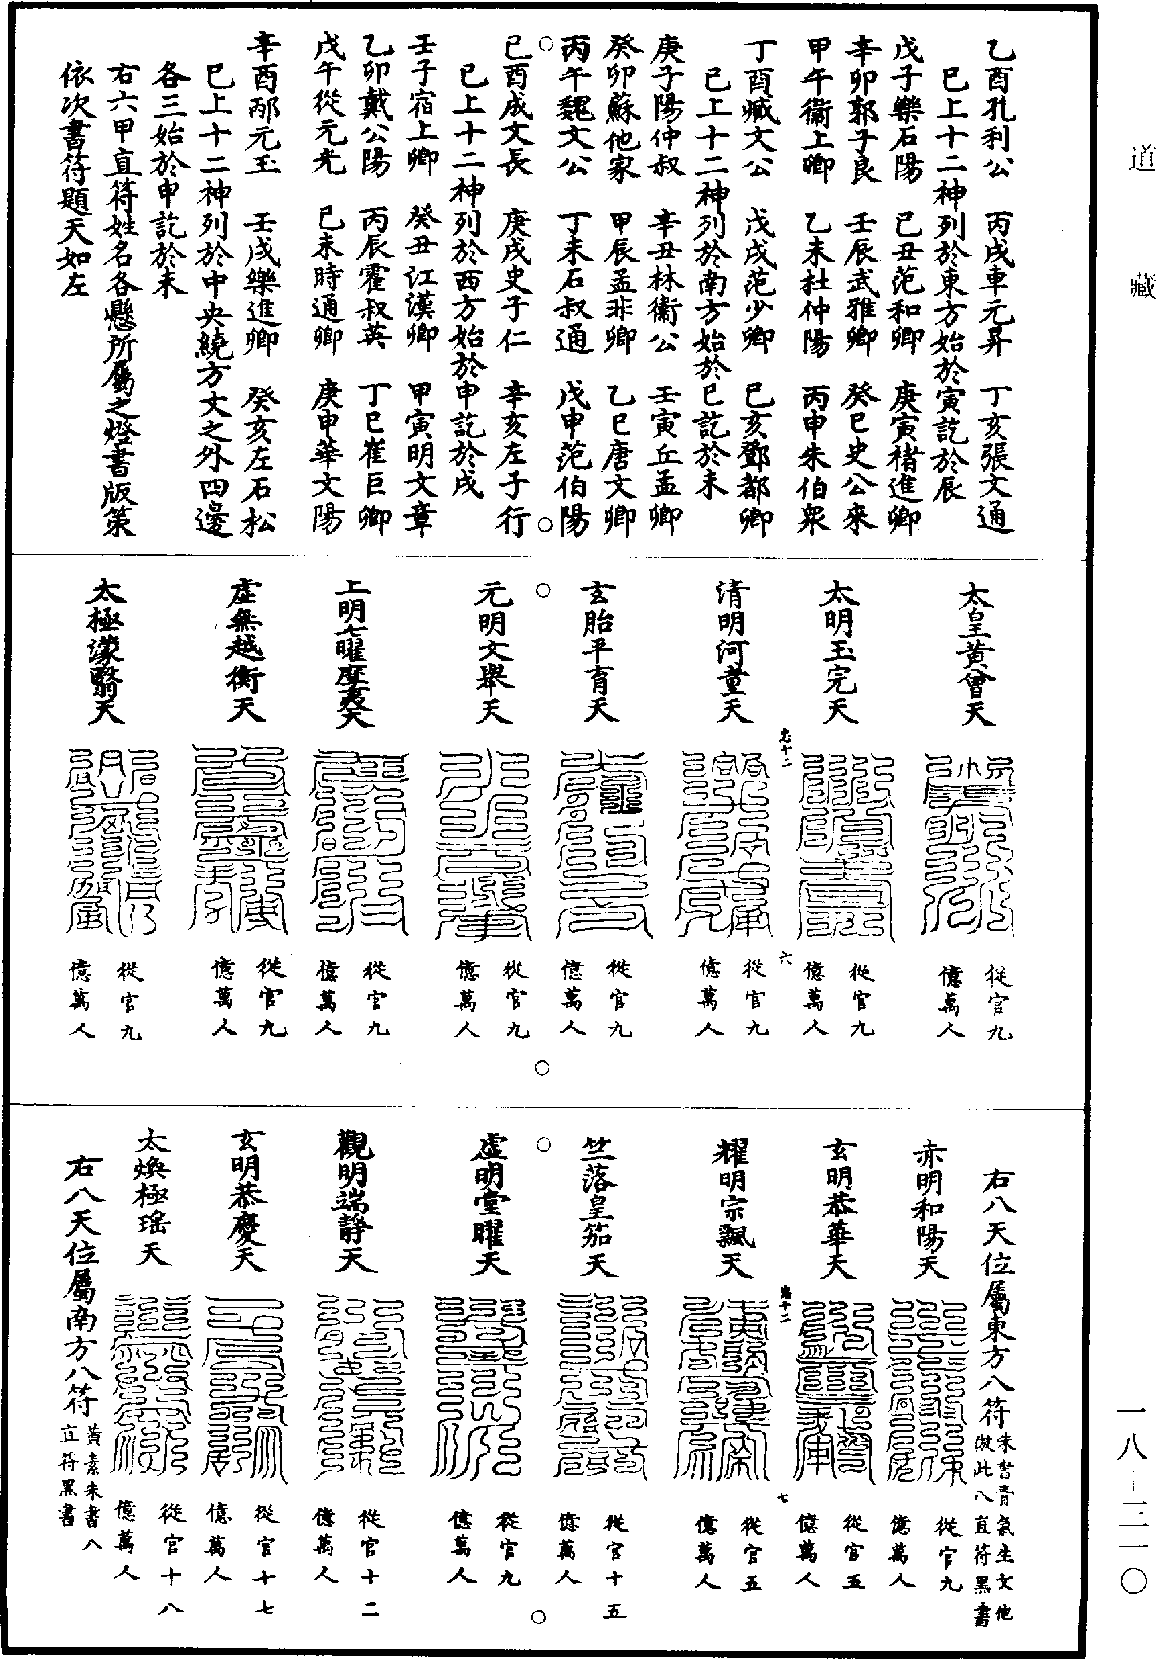 道藏
乙酉孔利公　丙戌車元昇　丁亥張文通
已上十二神列於東方始於寅訖於辰
戊子樂石陽　己丑范和卿　庚寅褚進卿
辛卯郭子良　壬辰武雅卿　癸巳史公來
甲午衞上卿　乙未杜仲陽　丙申朱伯衆
丁酉臧文公　戊戌范少卿　己亥鄧都卿
已上十二神列於南方始於巳訖於未
庚子陽仲叔　辛丑林衞公　壬寅丘孟卿
癸卯蘇他家　甲辰孟非卿　乙巳唐文卿
丙午魏文公　丁未石叔通　戊申范伯陽
己酉成文長　庚戌史子仁　辛亥左子行
已上十二神列於西方始於申訖於戌
壬子宿上卿　癸丑江漢卿　甲寅明文章
乙卯戴公陽　丙辰霍叔英　丁巳崔巨卿
戊午從元光　己未時通卿　庚申華文陽
辛酉邴元玉　壬戌樂進卿　癸亥左石松
已上十二神列於中央繞方文之外四邊
各三始於申訖於未
右六甲直符姓名各懸所屬之燈書版策
依次書符題天如左
太皇黃曾天
從官九
億萬人
太明玉完天
從官九
億萬人
清明何童天
從官九
億萬人
玄胎平育天
從官九
億萬人
元明文舉天
從官九
億萬人
上明七曜摩夷天
從官九
億萬人
虛無越衡天
從官九
億萬人
太極濛翳天
從官九
億萬人
右八天位屬東方八符朱書青氣生文他
倣此八直符黑書
赤明和陽天
從官九
億萬人
玄明恭華天
從官五
億萬人
耀明宗飄天
從官五
億萬人
竺落皇笳天
從官十五
億萬人
虛明堂曜天
從官九
億萬人
觀明端靜天
從官十二
億萬人
玄明恭慶天
從官十七
億萬人
太煥極瑤天
從官十八
億萬人
右八天位屬南方八符黃素朱書八
直符黑書
一八—二一〇